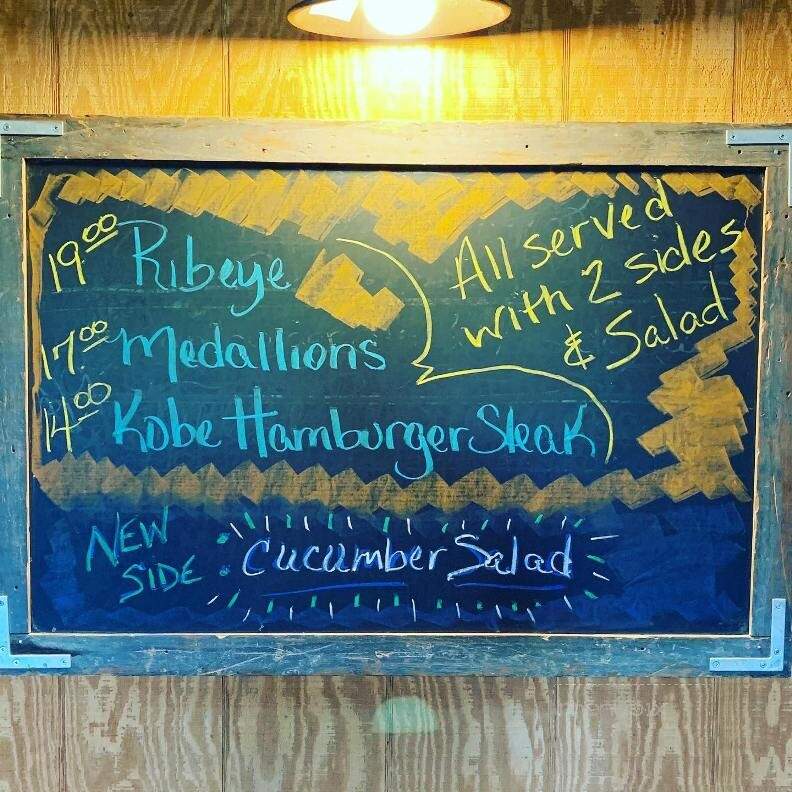 19.00 Ribeye
17.00 Medallions
14.00 Kobe Hamburger Steak
All served
with 2 sides
& Salad
NEW
SIDE : Cucumber Salad